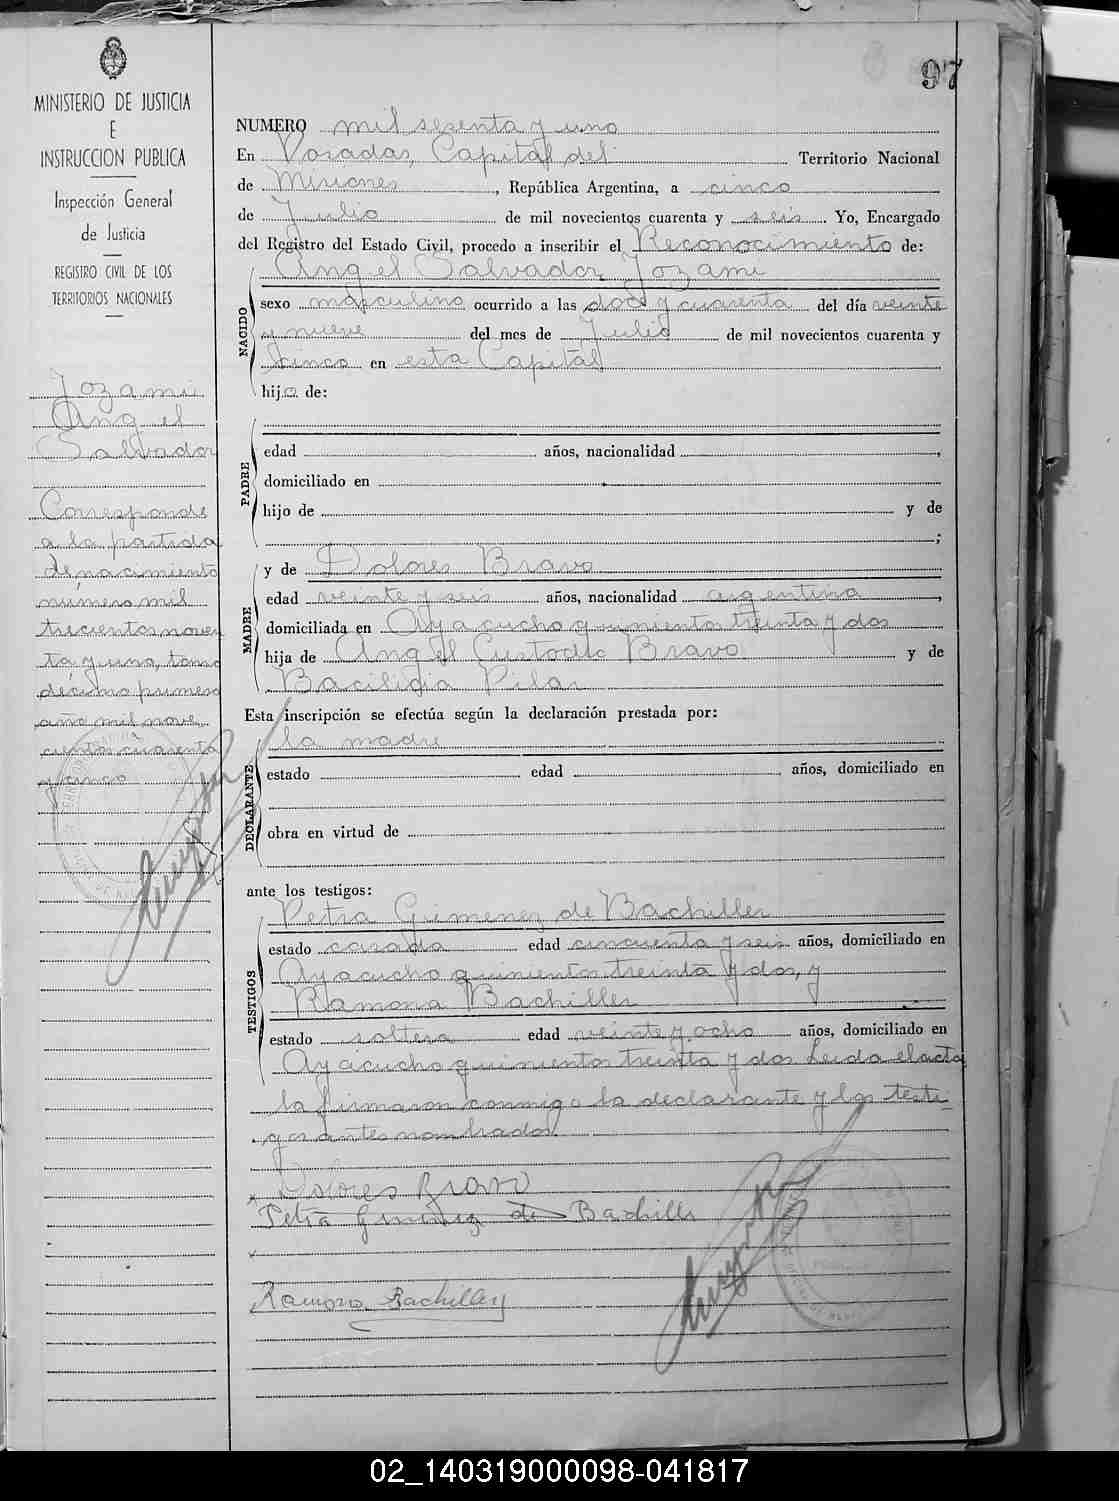 97
MINISTERIO DE JUSTICIA
E
INSTRUCCION PUBLICA
Inspección General
de Justicia
REGISTRO CIVIL DE LOS
TERRITORIOS NACIONALES
Jozami
Angel
Salvador
Corresponde
a la partida
de nacimiento
número mil
trecientos noven
ta y uno, tomo
décimo primero
año mil nove
cientos cuarenta
y cinco
NUMERO mil sesenta y uno
En Posadas, Capital del Territorio Nacional
de Misiones, República Argentina, a cinco
de Julio de mil novecientos cuarenta y seis. Yo, Encargado
del Registro del Estado Civil, procedo a inscribir el Reconocimiento de:
Angel Salvador Jozami
NACIDO
sexo masculino ocurrido a las doce y cuarenta del día veinte
y nueve del mes de Julio de mil novecientos cuarenta y
cinco en esta Capital
hijo de:
PADRE
edad años, nacionalidad ,
domiciliado en
hijo de y de
;
MADRE
y de Dolores Bravo
edad veinte y seis años, nacionalidad argentina,
domiciliada en Ayacucho quinientos treinta y dos
hija de Angel Custodio Bravo y de
Pilar
Esta inscripción se efectúa según la declaración prestada por:
la madre
DECLARANTE
estado edad años, domiciliado en
obra en virtud de
ante los testigos:
TESTIGOS
Petra Gimenez de Bachiller
estado casada edad cincuenta y seis años, domiciliado en
Ayacucho quinientos treinta y dos, y
Ramona Bachiller
estado soltera edad veinte y ocho años, domiciliado en
Ayacucho quinientos treinta y dos Leida el acta
la firmaron conmigo la declarante y los testi-
gos antes nombrados.
Dolores Bravo
Petra Gimenez de Bachiller
Ramona Bachiller
02_140319000098-041817